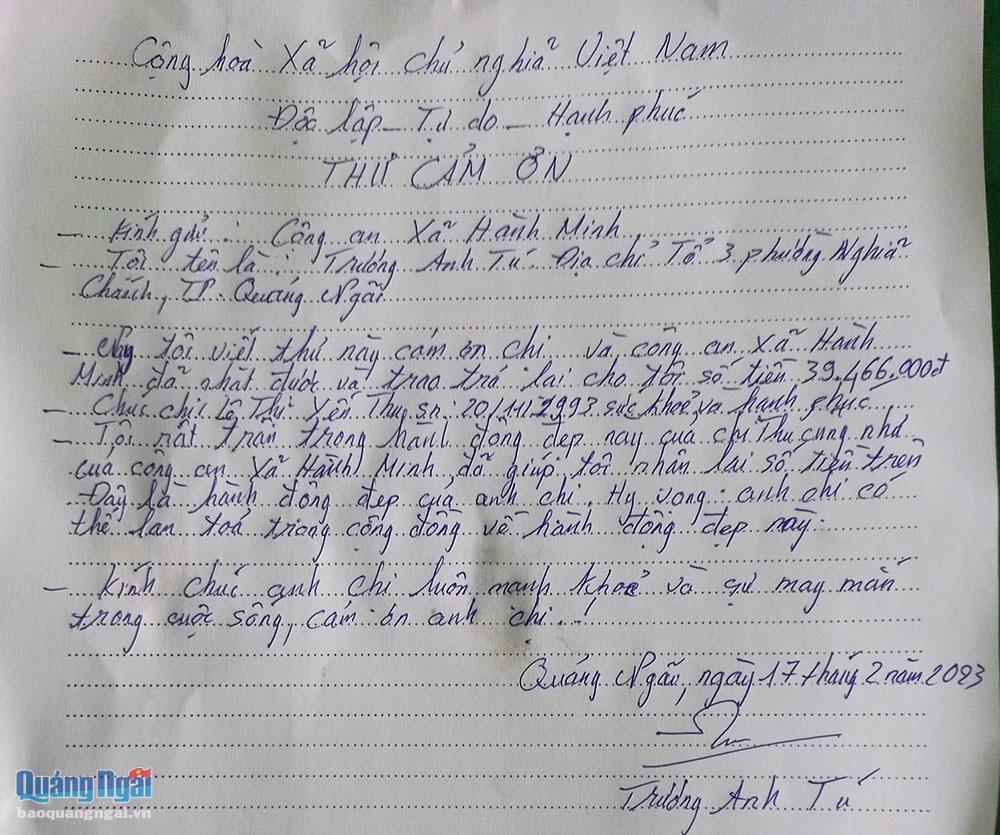 Cộng hoà Xã hội chủ nghĩa Việt Nam
Độc lập - Tự do - Hạnh phúc
THƯ CẢM ƠN
- Kính gửi: Công an Xã Hành Minh.
- Tôi tên là: Trương Anh Tú Địa chỉ Tổ 3 phường Nghĩa
Chánh, TP. Quảng Ngãi
- Nay tôi viết thư này cảm ơn chị và công an xã Hành
Minh đã nhặt được và trao trả lại cho tôi số tiền 39.466.000đ
- Chúc chị Lê Thị Yến Thu sn: 20/11/1993 sức khoẻ và hạnh phúc
- Tôi rất trân trọng hành động đẹp này của chị Thu cũng như
của công an Xã Hành Minh, đã giúp tôi nhận lại số tiền trên
Đây là hành động đẹp của anh chị. Hy vọng anh chị có
thể lan toả trong cộng đồng về hành động đẹp này.
- Kính chúc anh chị luôn mạnh khoẻ và sự may mắn
trong cuộc sống, cám ơn anh chị.!
Quảng Ngãi, ngày 17 tháng 2 năm 2023
Trương Anh Tú
Quảng Ngãi
baoquangngai.vn